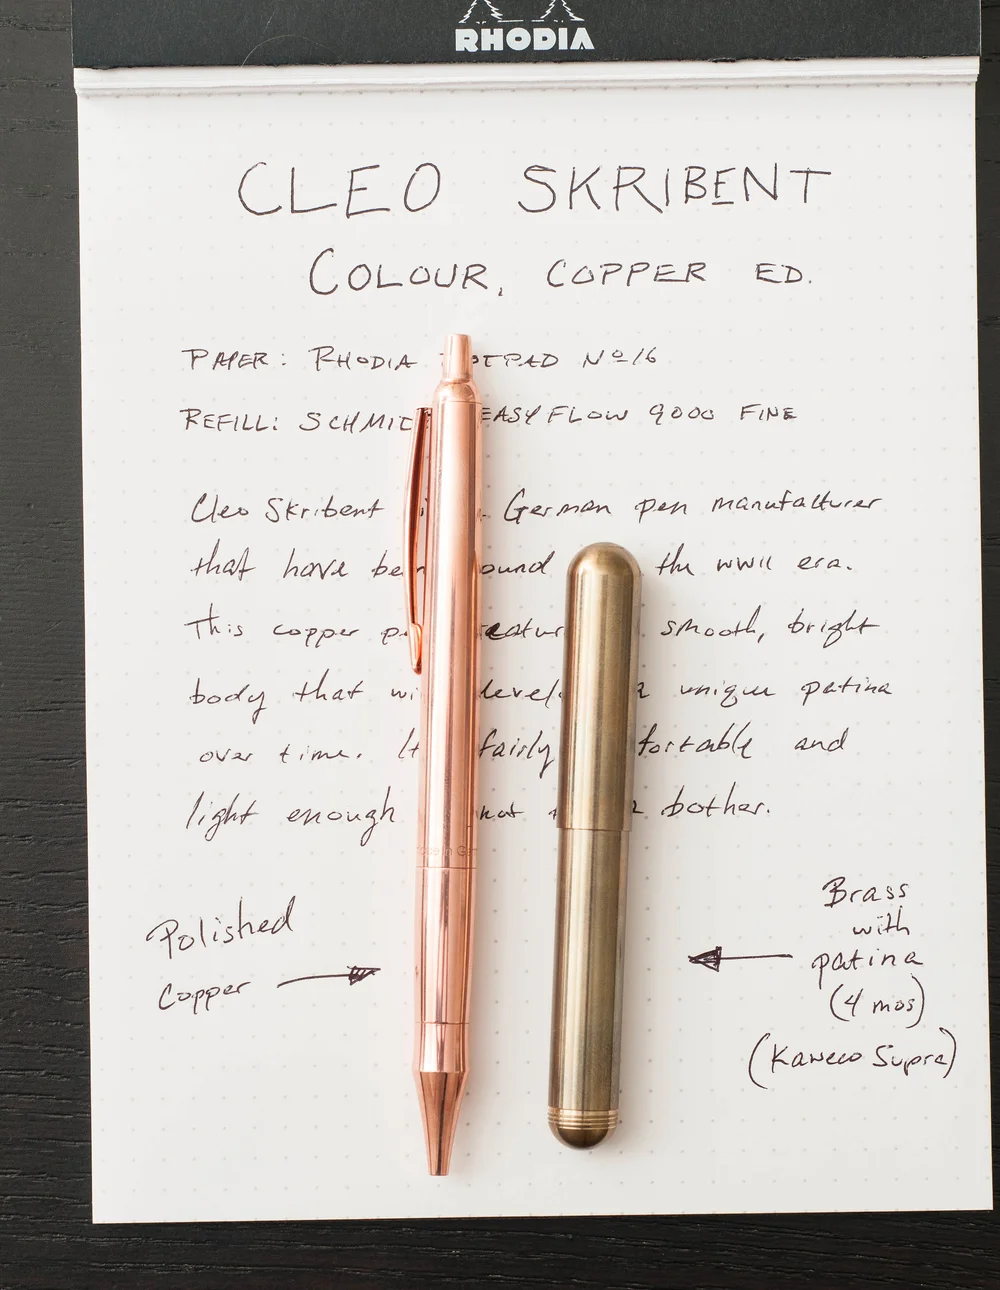 RHODIA
CLEO SKRIBENT
COLOUR, COPPER ED.
PAPER: RHODIA NOTPAD Nº16
REFILL: SCHMIDT EASYFLOW 9000 FINE
Cleo Skribent German pen manufacturer
that have been around the WWII era.
This copper pen features smooth, bright
body that will develop a unique patina
over time. It fairly comfortable and
light enough not bother.
made in Ger
Polished
copper
Brass
with
patina
(4 mos)
(Kaweco Supra)